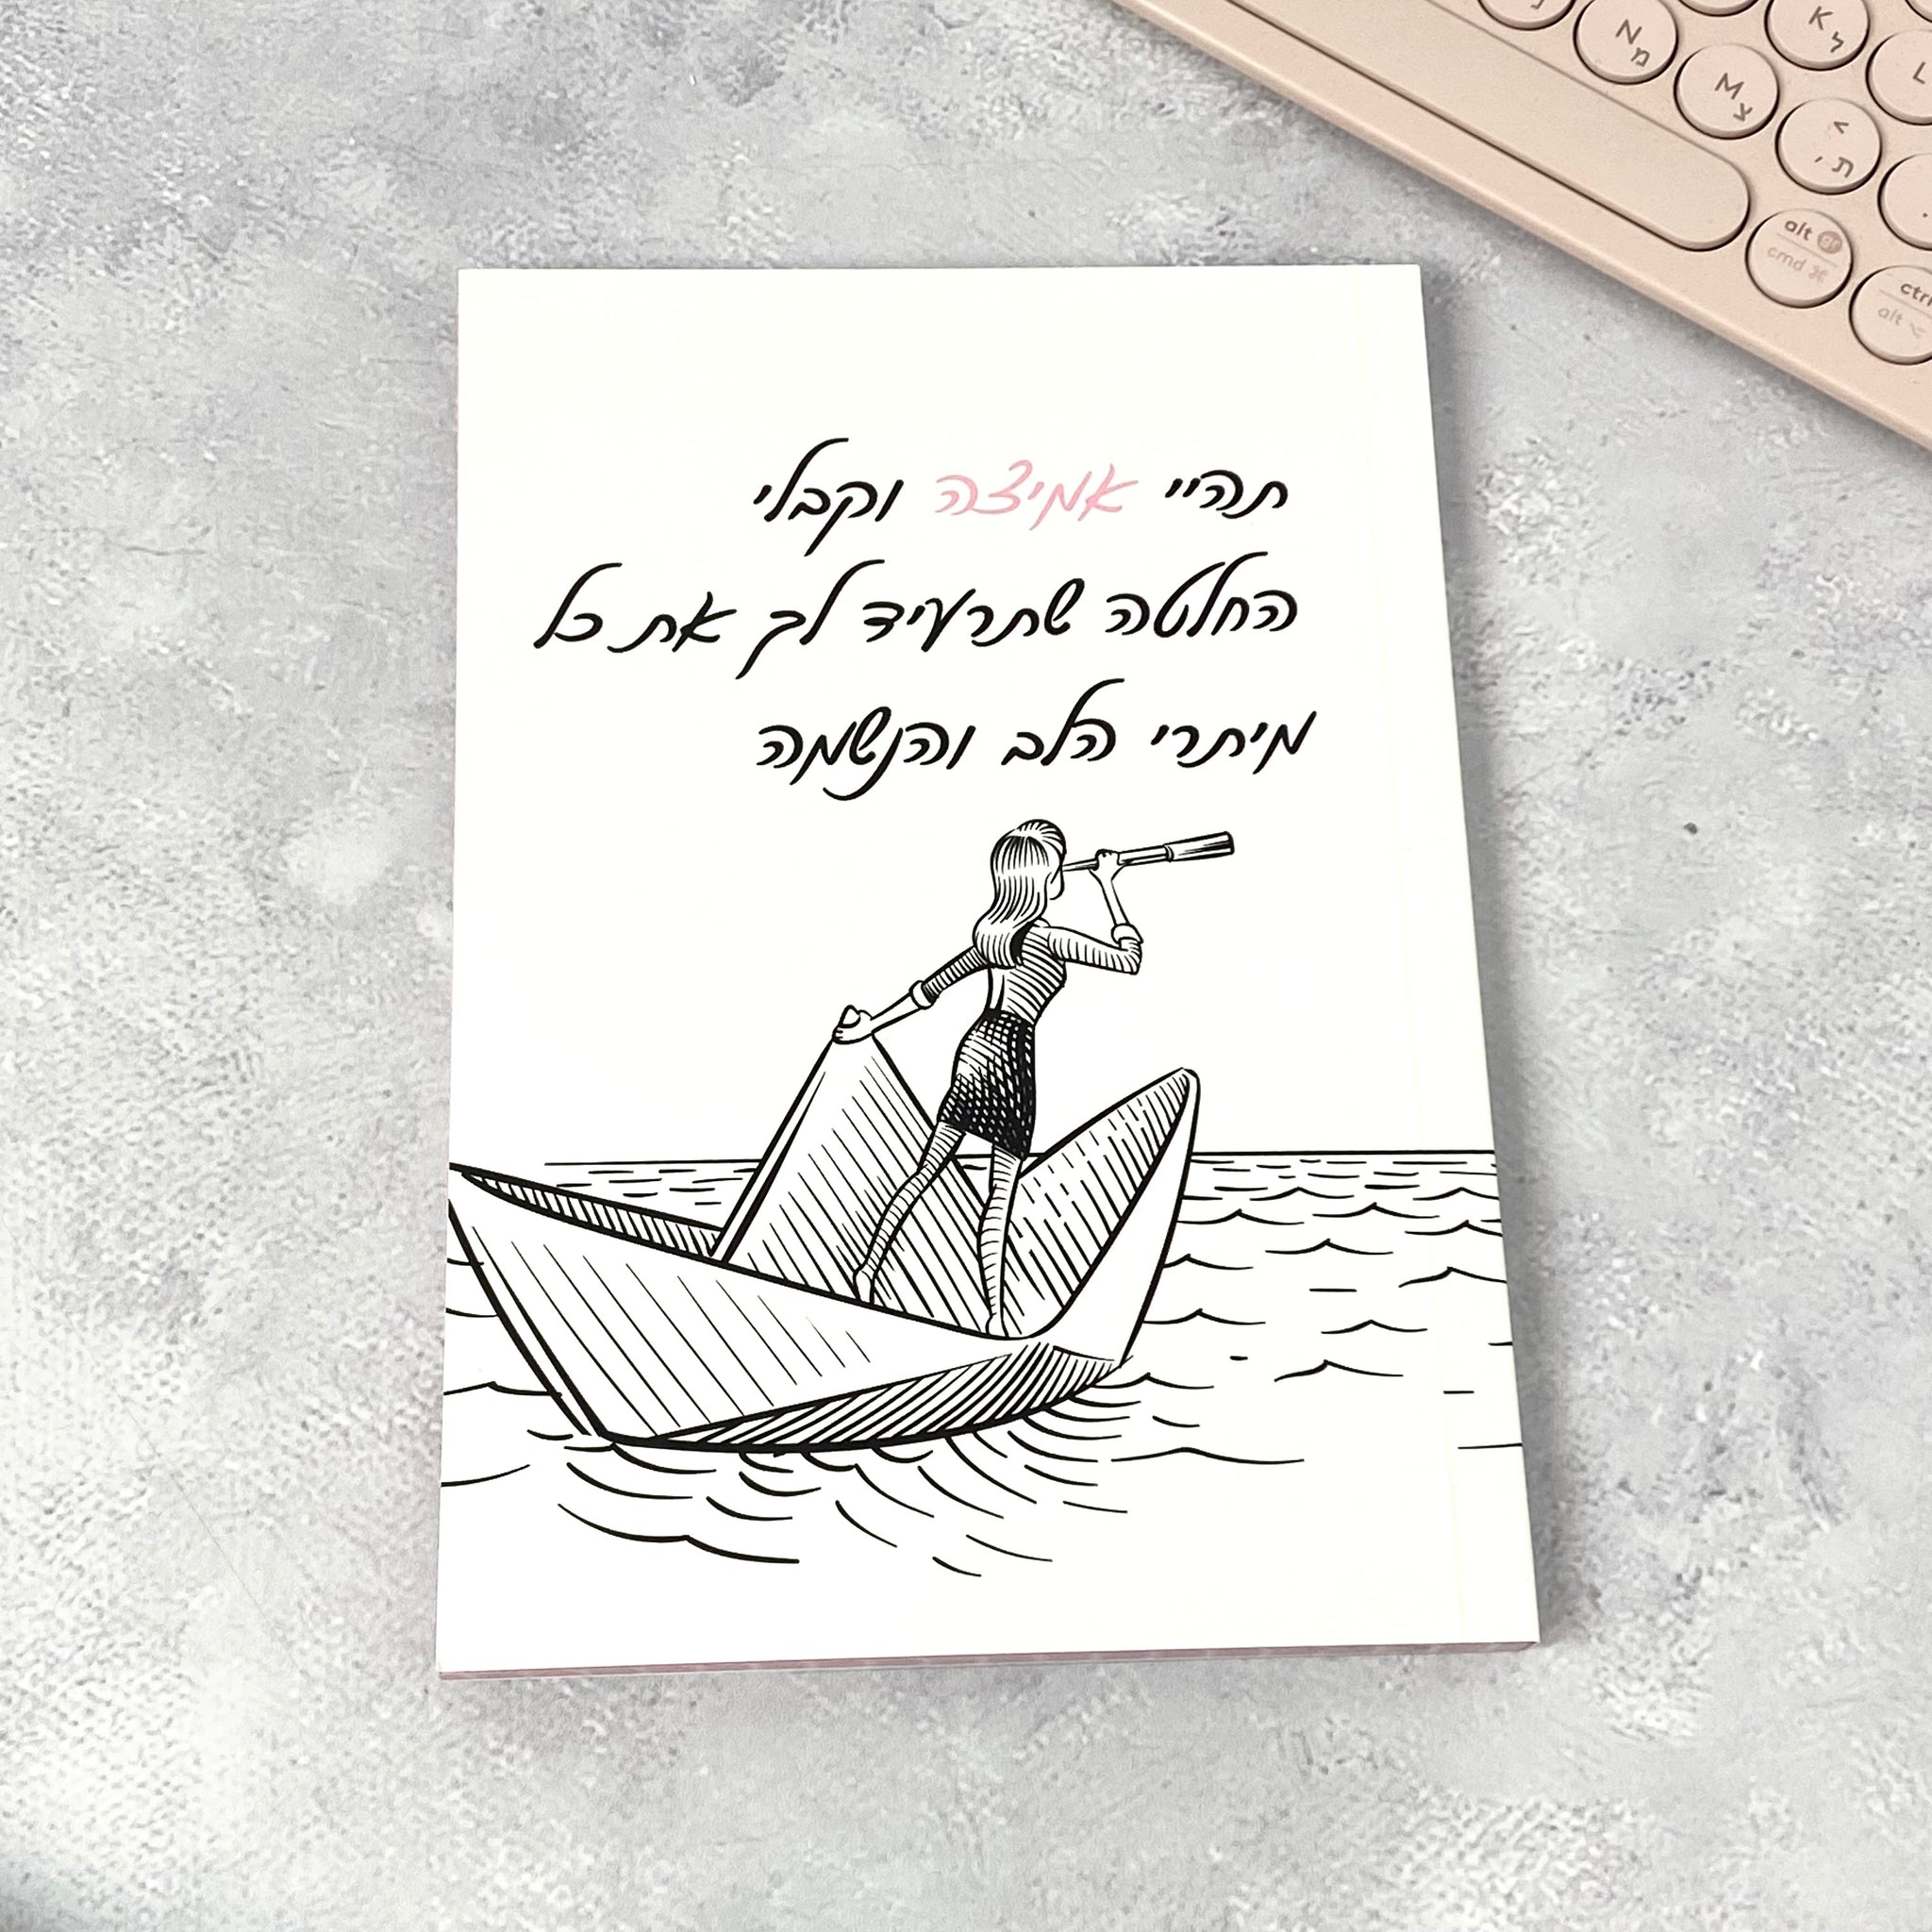 תהיי אמיצה וקבלי
החלטה שתרעיד לך את כל
מיתרי הלב והנשמה
K ל
N מ
M צ
L
< ת ,
.
alt gr
cmd ⌘
ctrl
alt ⌥